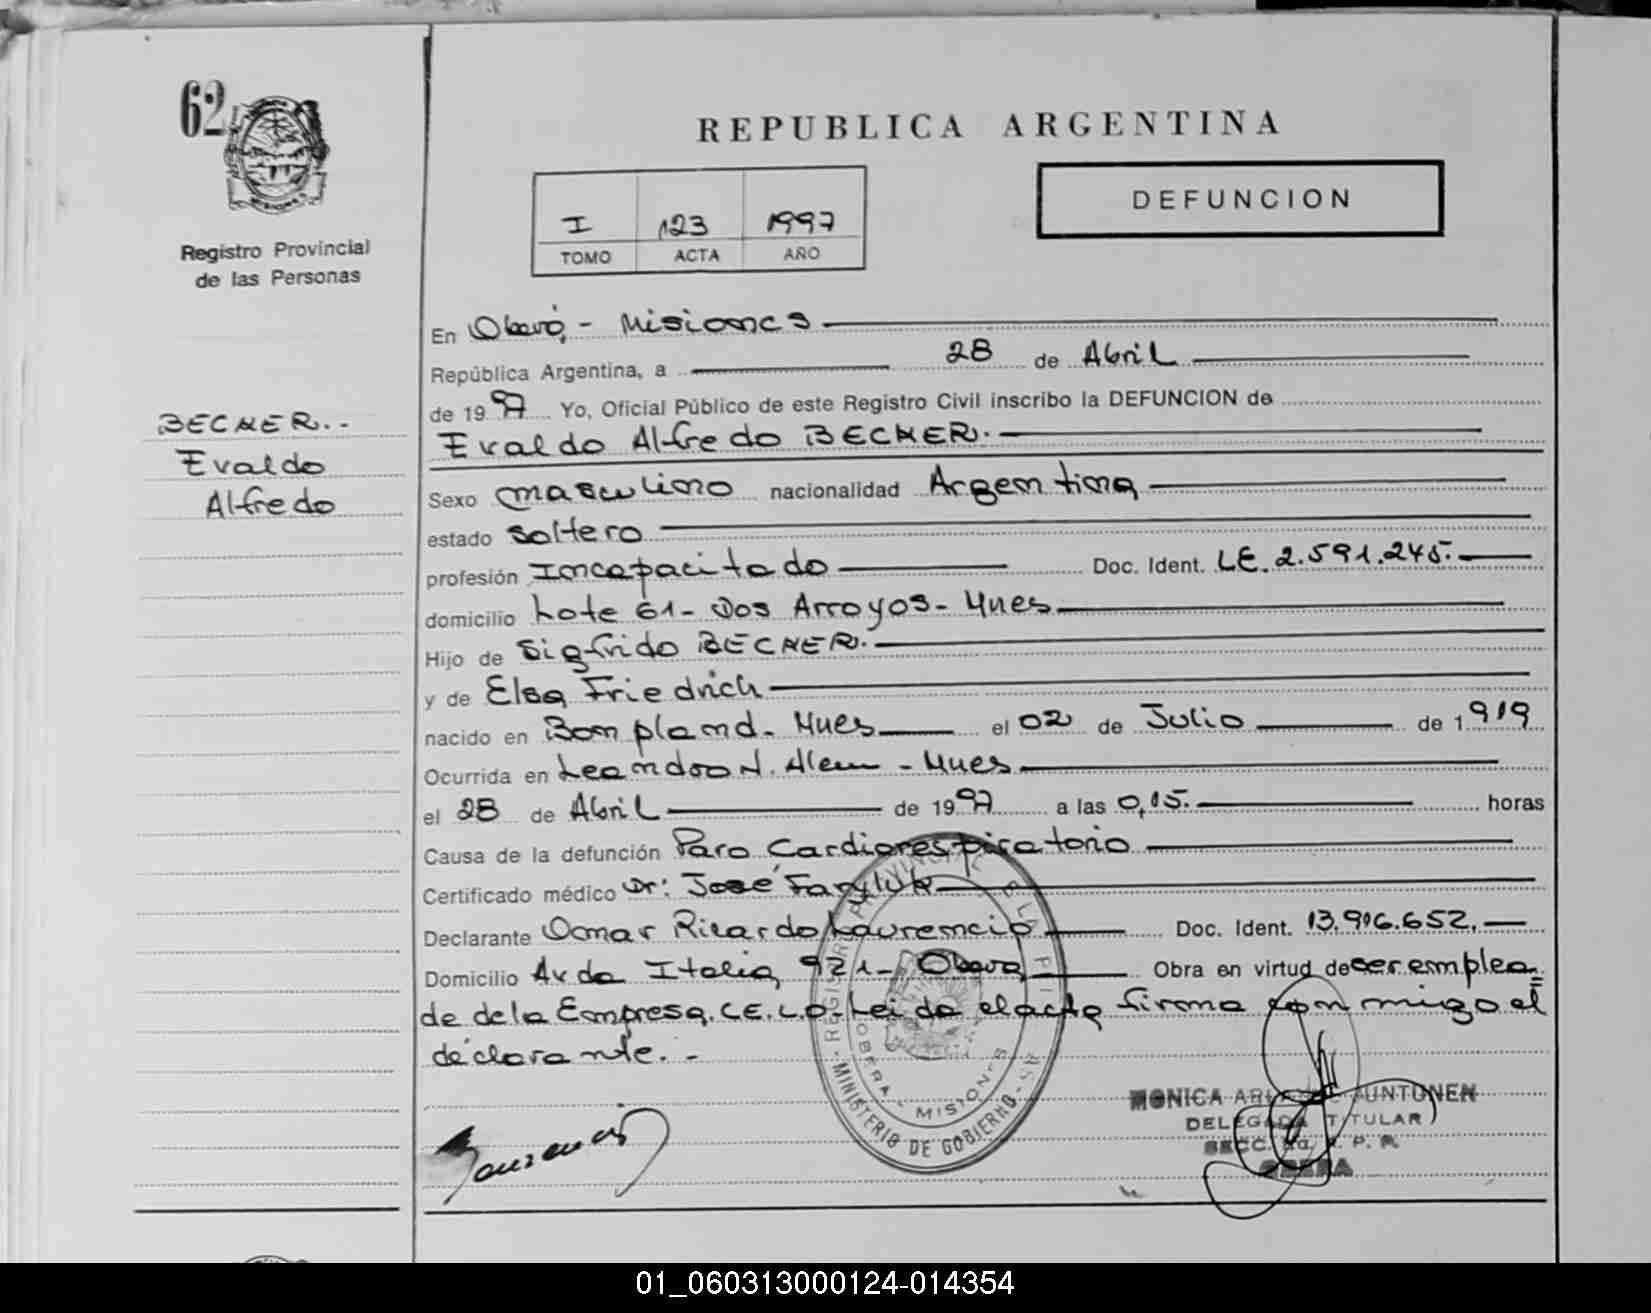 62
REPUBLICA ARGENTINA
DEFUNCION
I 123 1997
TOMO ACTA AÑO
Registro Provincial
de las Personas
BECKER.-
Evaldo
Alfredo
En Oberá - Misiones
República Argentina, a 28 de Abril
de 1997 Yo, Oficial Público de este Registro Civil inscribo la DEFUNCION de
Evaldo Alfredo BECKER.
Sexo masculino nacionalidad Argentina
estado soltero
profesión Incapacitado Doc. Ident. LE. 2.591.245.
domicilio Lote 61- Dos Arroyos- Mnes
Hijo de Sigfrido BECKER.
y de Elsa Friedrich
nacido en Bonpland- Mnes el 02 de Julio de 1.919
Ocurrida en Leandro N. Alem - Mnes
el 28 de Abril de 1997 a las 0,15. horas
Causa de la defunción Paro Cardiorespiratorio
Certificado médico Dr: José Faryluk
Declarante Omar Ricardo Laurencio Doc. Ident. 13.916.652.
Domicilio Avda Italia 921- Oberá Obra en virtud de ser emplea=
do de la Empresa C.E.L.O. Leída el acta firma conmigo el
declarante.-
REGISTRO PROVINCIAL DE LAS PERSONAS
MINISTERIO DE GOBIERNO
OBERA - MISIONES
MONICA JUNTUNEN
DELEGADA TITULAR
SECC. R. P. P.
OBERA
01_060313000124-014354